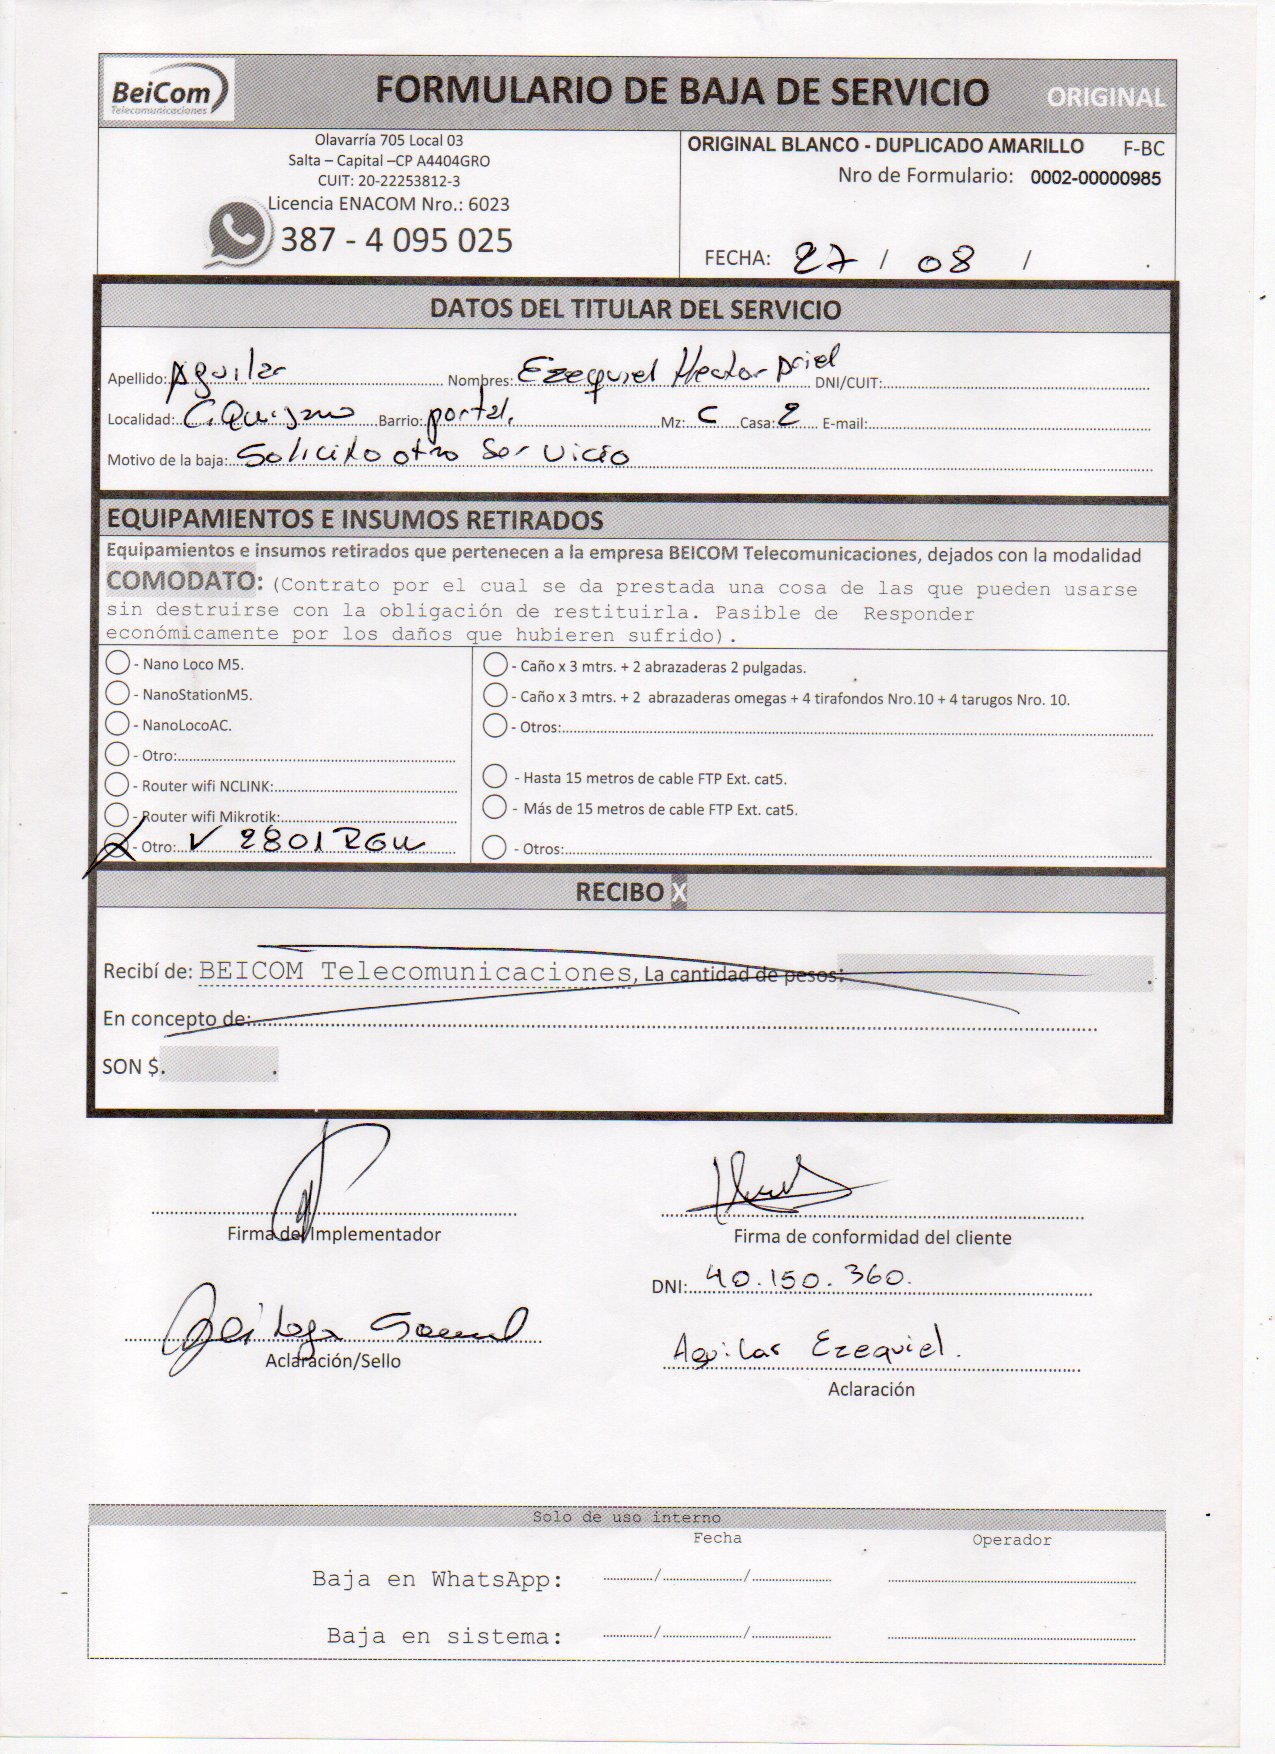 BeiCom
Telecomunicaciones
FORMULARIO DE BAJA DE SERVICIO
ORIGINAL
Olavarría 705 Local 03
Salta – Capital –CP A4404GRO
CUIT: 20-22253812-3
Licencia ENACOM Nro.: 6023
387 - 4 095 025
ORIGINAL BLANCO - DUPLICADO AMARILLO F-BC
Nro de Formulario: 0002-00000985
FECHA: 27 / 08 / .
DATOS DEL TITULAR DEL SERVICIO
Apellido: Aguilar Nombres: Ezequiel Hector Ariel DNI/CUIT:
Localidad: C. Quijano Barrio: portal. Mz: C Casa: 2 E-mail:
Motivo de la baja: Solicito otro Servicio
EQUIPAMIENTOS E INSUMOS RETIRADOS
Equipamientos e insumos retirados que pertenecen a la empresa BEICOM Telecomunicaciones, dejados con la modalidad
COMODATO: (Contrato por el cual se da prestada una cosa de las que pueden usarse
sin destruirse con la obligación de restituirla. Pasible de Responder
económicamente por los daños que hubieren sufrido).
- Nano Loco M5.
- NanoStationM5.
- NanoLocoAC.
- Otro:
- Router wifi NCLINK:
- Router wifi Mikrotik:
- Otro: V2801RGW
- Caño x 3 mtrs. + 2 abrazaderas 2 pulgadas.
- Caño x 3 mtrs. + 2 abrazaderas omegas + 4 tirafondos Nro.10 + 4 tarugos Nro. 10.
- Otros:
- Hasta 15 metros de cable FTP Ext. cat5.
- Más de 15 metros de cable FTP Ext. cat5.
- Otros:
RECIBO X
Recibí de: BEICOM Telecomunicaciones, La cantidad de pesos: .
En concepto de:
SON $. .
Firma del Implementador
Firma de conformidad del cliente
DNI: 40.150.360.
Aclaración/Sello
Aguilar Ezequiel.
Aclaración
Solo de uso interno
Fecha Operador
Baja en WhatsApp: / /
Baja en sistema: / /